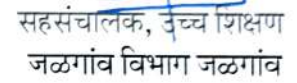 सहसंचालक, उच्च शिक्षण
जळगांव विभाग जळगांव